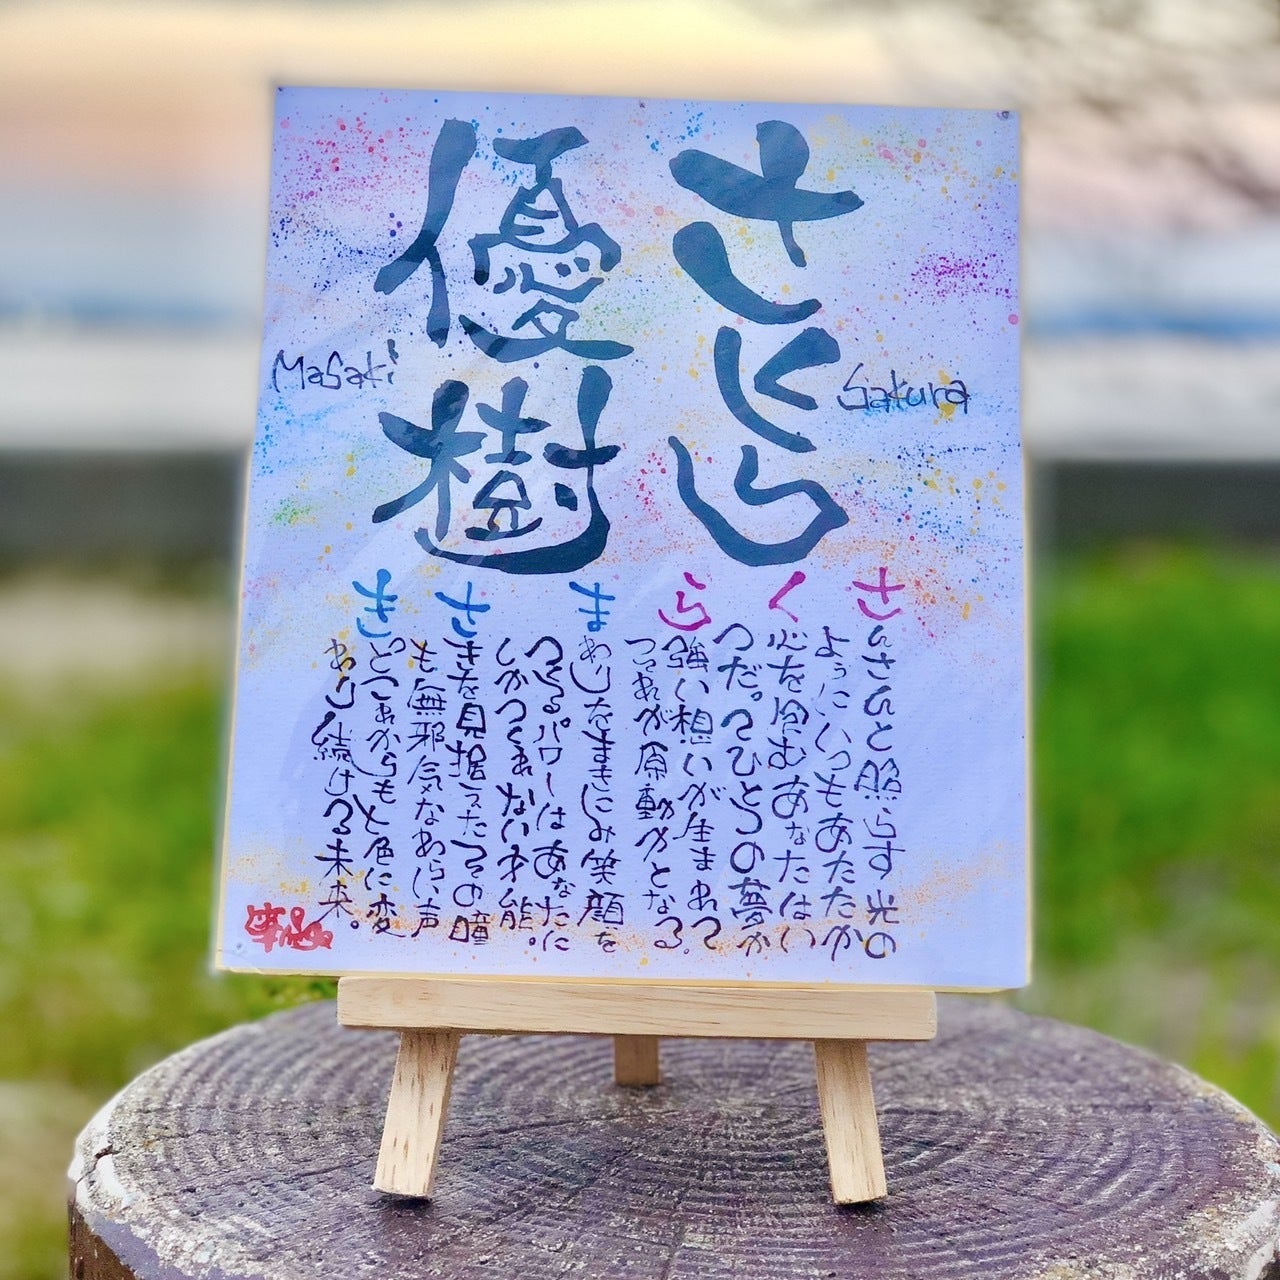 さくら
Sakura
優樹
Masaki
さんさんと照らす光の
ようにいつもあたたか
く心を包むあなたはい
つだってひとつの夢か
ら強い想いが生まれて
それが原動力となる。
まわりをまきこみ笑顔を
つくるパワーはあなたに
しかつくれない才能。
さきを見据えたその瞳
も無邪気なわらい声
きっとこれからも七色に変
わり続ける未来。